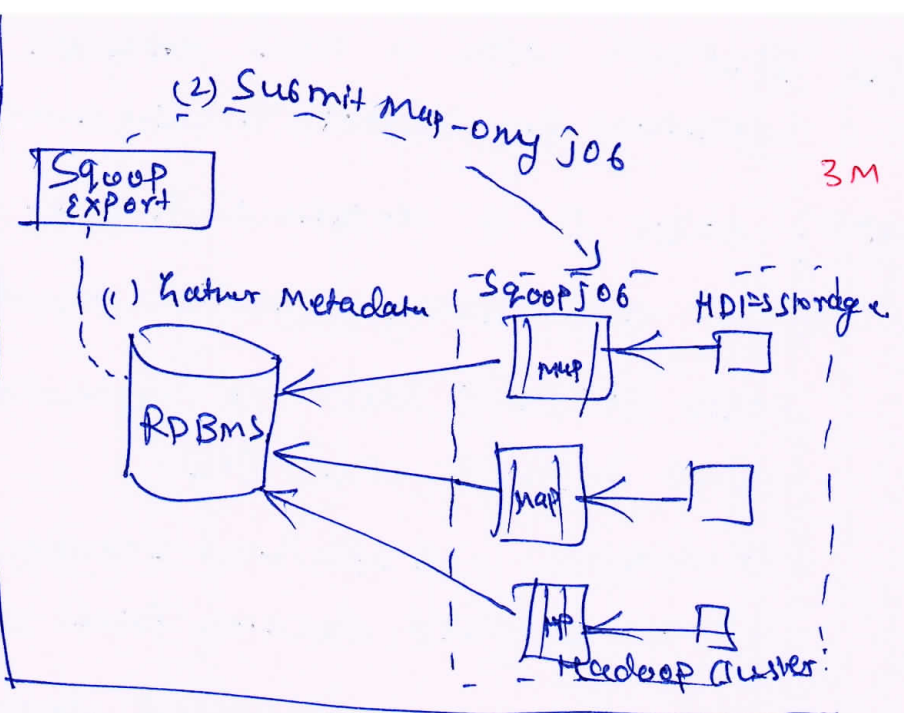 (2) Submit Map-Only job
Sqoop
Export
3M
(1) Gather Metadata
Sqoop job
HDFS storage
Map
RDBMS
Map
MP
Hadoop Cluster